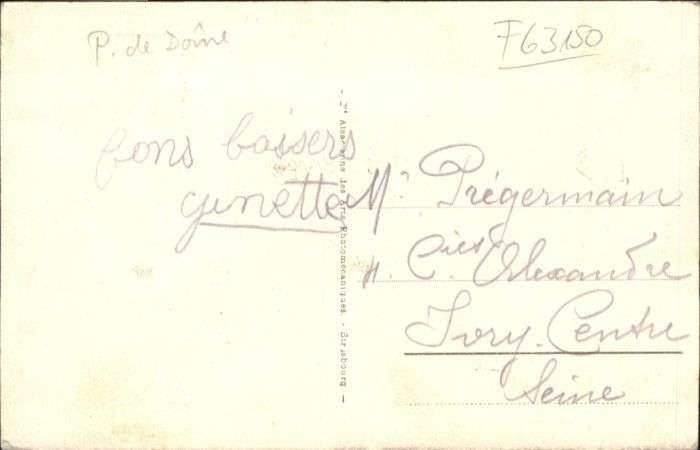 P. de Dôme
F63150
bons baisers
Ginette
- Cie Alsacienne des Arts Photomécaniques. - Strasbourg -
Mr Prégermain
Alexandre
Ivry-Centre
Seine